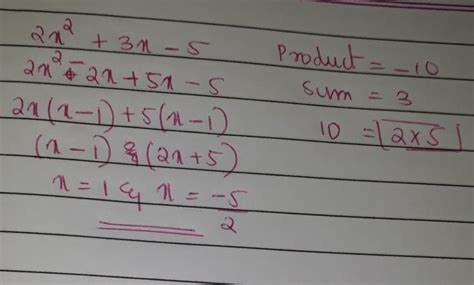 2x² + 3x - 5
2x² - 2x + 5x - 5
2x(x-1) + 5(x-1)
(x-1) & (2x+5)
x = 1 & x = -5/2
Product = -10
Sum = 3
10 = 2×5